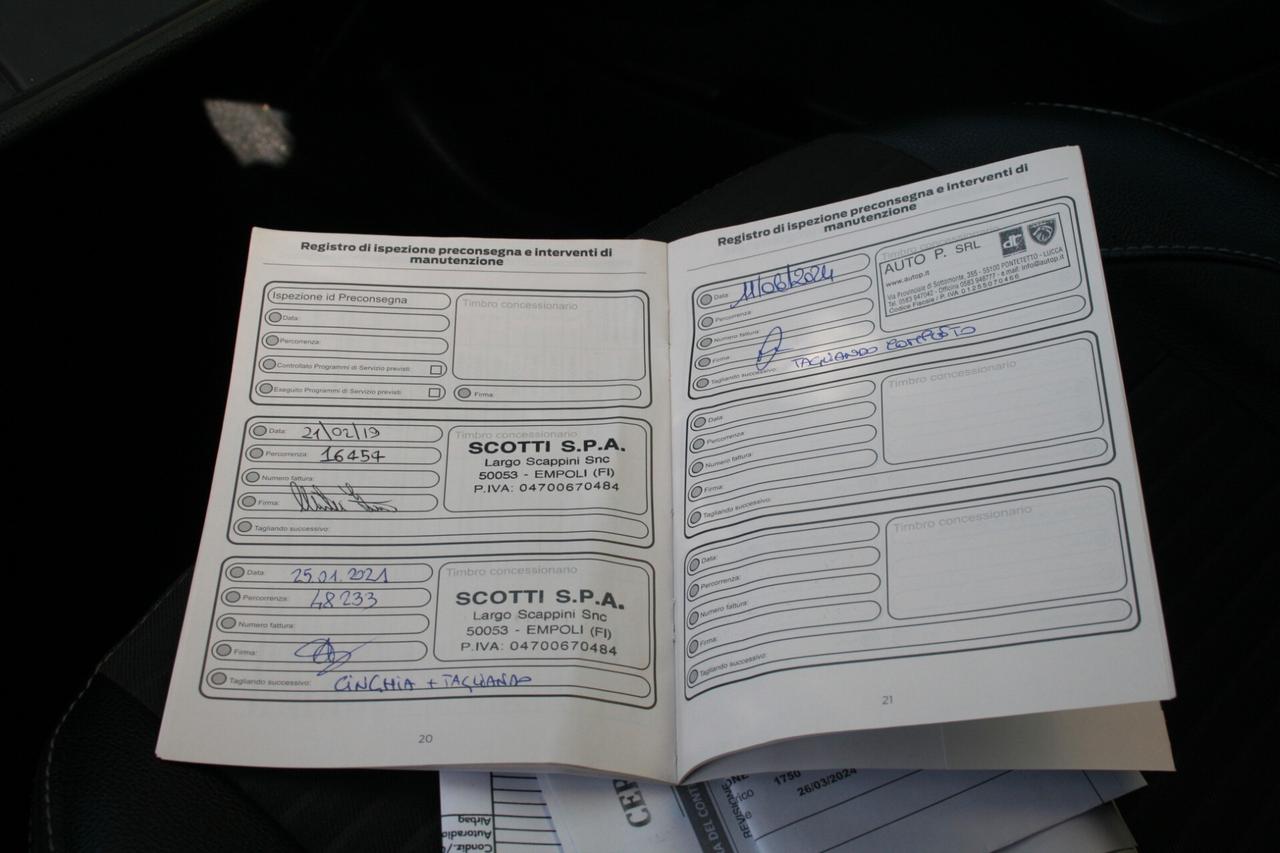 Registro di ispezione preconsegna e interventi di
manutenzione
Ispezione id Preconsegna
Data:
Percorrenza:
Controllato Programmi di Servizio previsti:
Eseguito Programmi di Servizio previsti:
Timbro concessionario
Firma:
Data: 21/02/19
Percorrenza: 16454
Numero fattura:
Firma:
Tagliando successivo:
Timbro concessionario
SCOTTI S.P.A.
Largo Scappini Snc
50053 - EMPOLI (FI)
P.IVA: 04700670484
Data: 25.01.2021
Percorrenza: 48233
Numero fattura:
Firma:
Tagliando successivo: CINGHIA + TAGLIANDO
Timbro concessionario
SCOTTI S.P.A.
Largo Scappini Snc
50053 - EMPOLI (FI)
P.IVA: 04700670484
20
Registro di ispezione preconsegna e interventi di
manutenzione
Data: 11/06/2024
Percorrenza:
Numero fattura:
Firma:
Tagliando successivo: TAGLIANDO COMPLETO
Timbro concessionario
AUTO P. SRL
www.autop.it
Via Provinciale di Sottomonte, 355 - 55100 PONTETETTO - LUCCA
Tel. 0583 947042 - Officina 0583 948777 - e.mail: info@autop.it
Codice Fiscale / P. IVA 01255070466
Data:
Percorrenza:
Numero fattura:
Firma:
Tagliando successivo:
Timbro concessionario
Data:
Percorrenza:
Numero fattura:
Firma:
Tagliando successivo:
Timbro concessionario
21
Condiz./
Autoradio
Airbag
A DEL CONT
REVISIONE
1750
26/03/2024